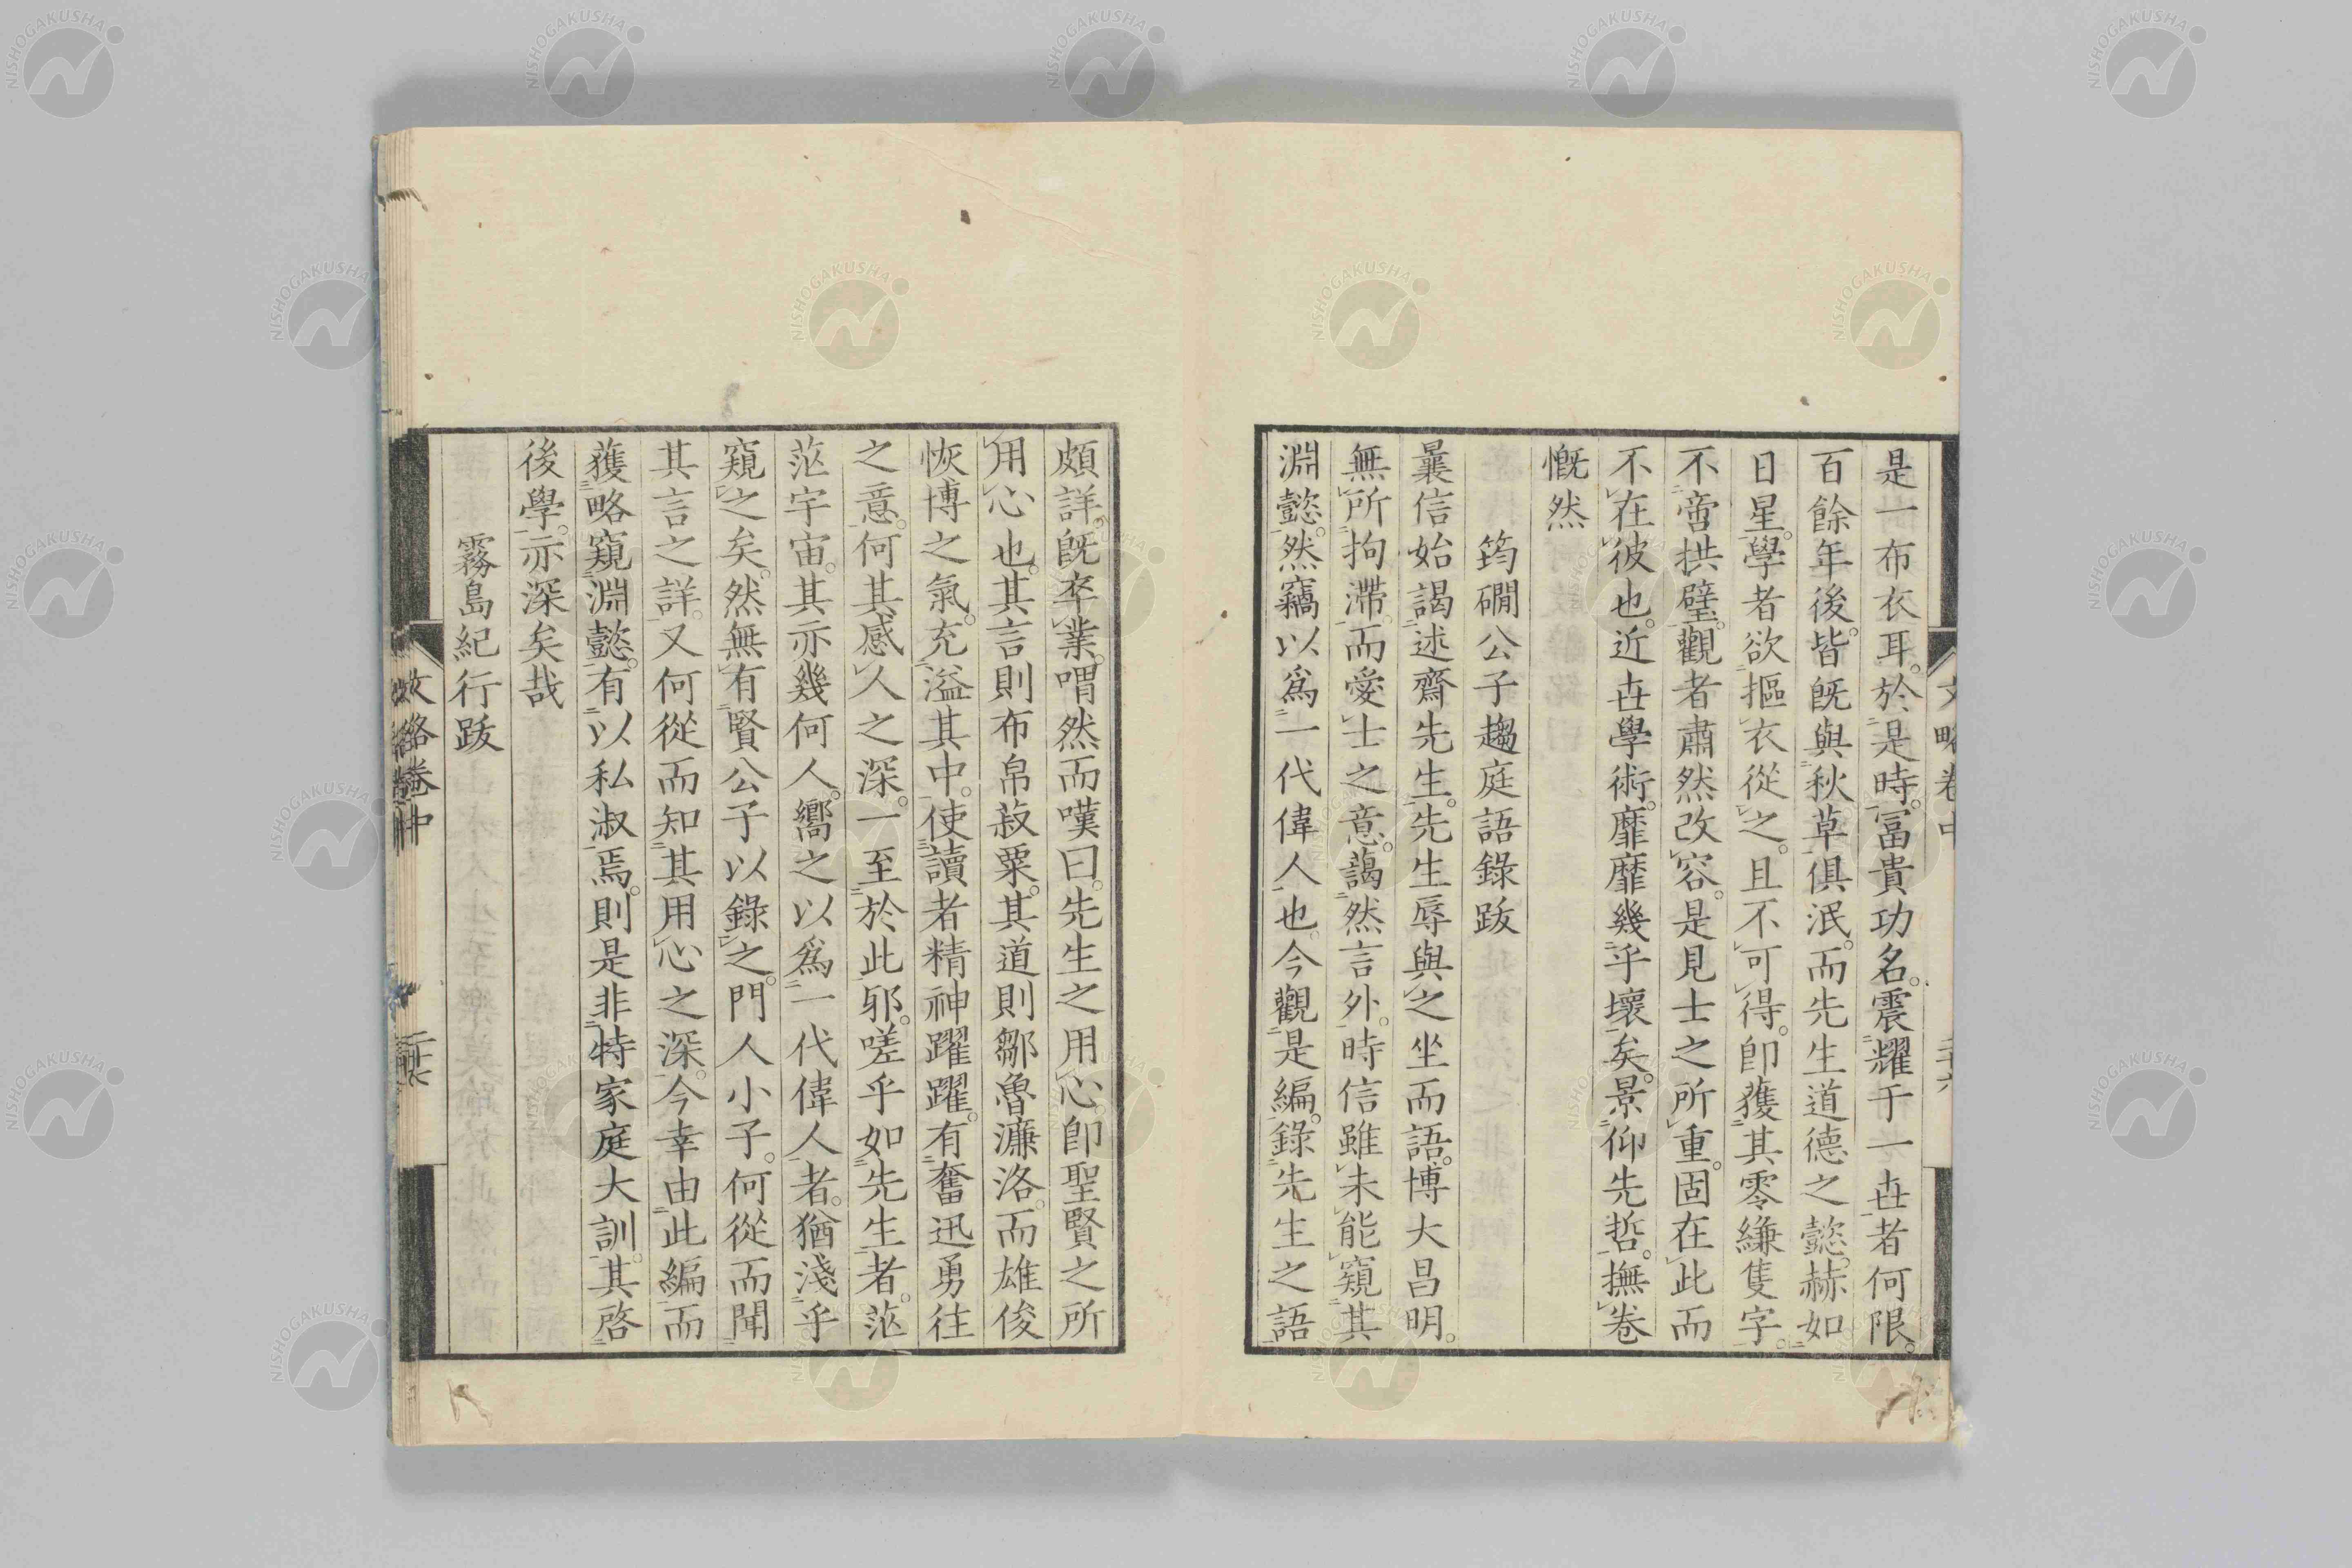 是一布衣耳。於是時。冨貴功名。震耀于一世者何限。
百餘年後。皆既與秋草俱泯。而先生道德之懿。赫如
日星。學者欲摳衣從之。且不可得。卽獲其零縑隻字。
不啻拱璧。觀者肅然改容。是見士之所重。固在此而
不在彼也。近世學術。靡靡幾乎壞矣。景仰先哲。撫卷
慨然
筠磵公子趨庭語錄跋
曩信始謁述齋先生。先生辱與之坐而語。博大昌明。
無所拘滯。而愛士之意。藹然言外。時信雖未能窺其
淵懿。然竊以爲一代偉人也。今觀是編。錄先生之語
頗詳。既卒業。喟然而嘆曰。先生之用心。卽聖賢之所
用心也。其言則布帛菽粟。其道則鄒魯濂洛。而雄俊
恢博之氣。充溢其中。使讀者精神躍躍。有奮迅勇往
之意。何其感人之深。一至於此邪。嗟乎如先生者。茫
茫宇宙。其亦幾何人。嚮之以爲一代偉人者。猶淺乎
窺之矣。然無有賢公子以錄之。門人小子。何從而聞
其言之詳。又何從而知其用心之深。今幸由此編而
獲略窺淵懿。有以私淑焉。則是非特家庭大訓。其啓
後學。亦深矣哉
霧島紀行跋
文略卷中
二十六
文略卷中
NISHOGAKUSHA